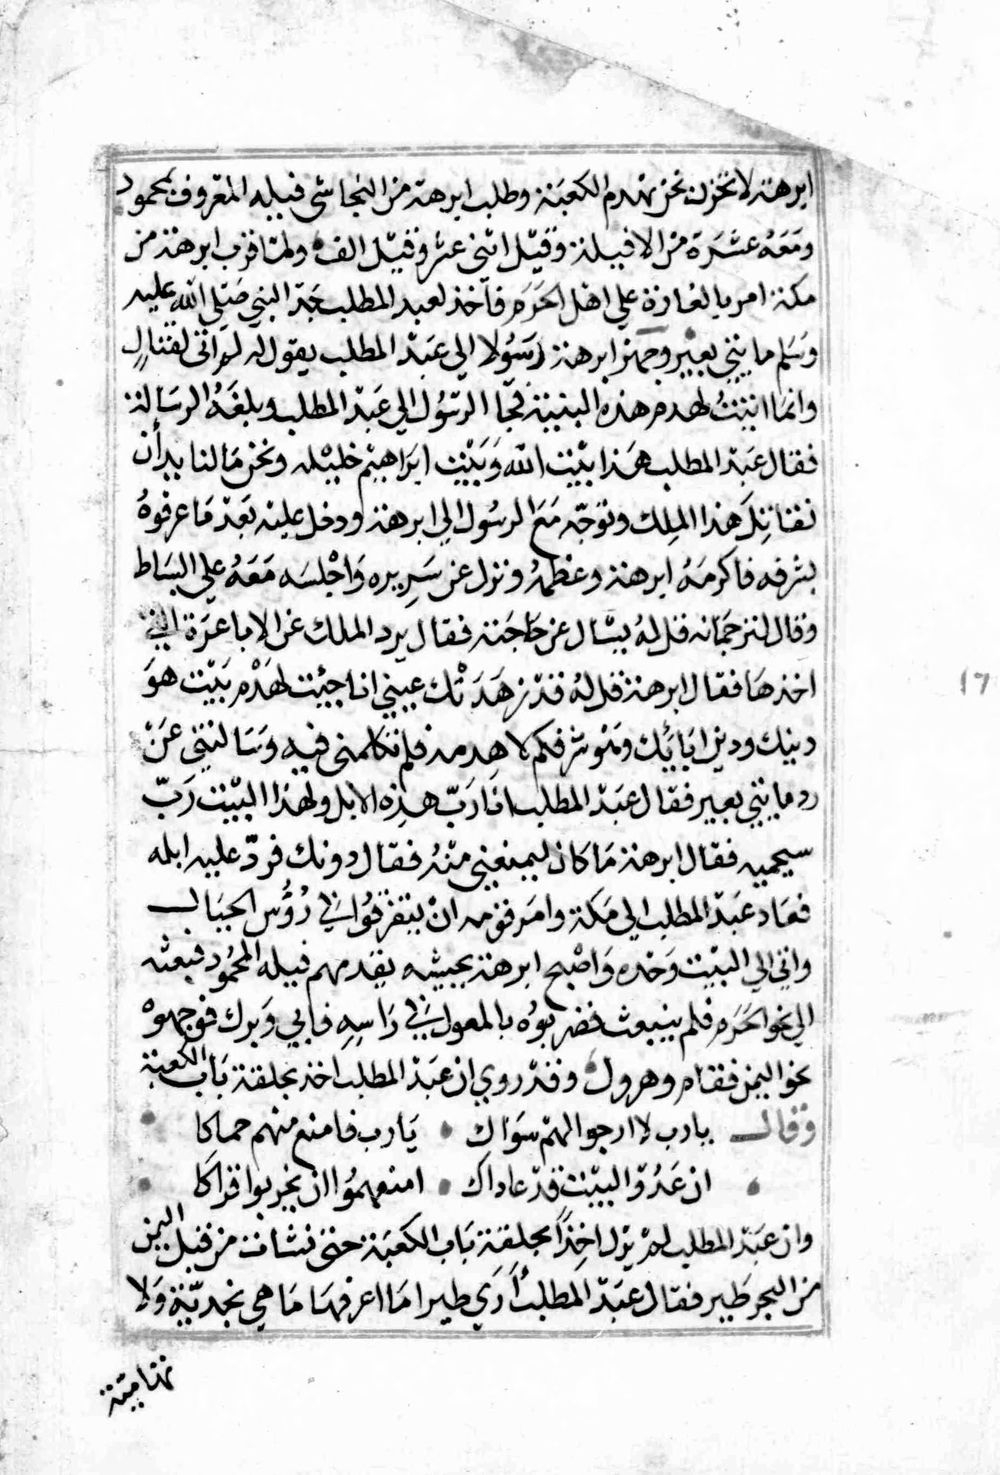 ابرهة لا تحزن نحن نهدم الكعبة وطلب ابرهة من النجاشى فيله المعروف بمحمود
ومعه عشرة من الافيلة وقيل اثنى عشر وقيل الف ولما قرب ابرهة من
مكة امر بالغارة على اهل الحرم فاخذ لعبد المطلب جد النبي صلى الله عليه
وسلم مايتي بعير وجهز ابرهة رسولا الي عبد المطلب يقول له لم اتى لقتال
وانما اتيت لهدم هذه البنية فجا الرسول الي عبد المطلب وبلغه الرسالة
فقال عبد المطلب هذا بيت الله وبيت ابراهيم خليله ونحن مالنا يد أن
نقاتل هذا الملك وتوجه مع الرسول الي ابرهة ودخل عليه بعد ما عرفوه
بشرفه فاكرمه ابرهة وعظمه ونزل عن سريره واجلسه معه علي البساط
وقال لترجمانه قل له يسال عن حاجته فقال يرد الملك عن الاباعرة التي
اخذها فقال ابرهة قل له قد زهدتك عيني انا جيت لهدم بيت هو
دينك ودين ابايك وشرفكم لاهدمه فلم تكلمني فيه وسالتني عن
رد مايتي بعير فقال عبد المطلب انا رب هذه الابل ولهذا البيت رب
سيحميه فقال ابرهة ما كان ليمنعني منه فقال دونك فرد عليه ابله
فعاد عبد المطلب الي مكة وامر قومه ان يتفرقوا في رؤس الجبال
واتي الي البيت وحده واصبح ابرهة بجيشه يقدمهم فيله المحمود فبعثه
الي نحو الحرم فلم ينبعث فضربوه بالمعول في راسه فابي وبرك فوجهوه
نحو اليمن فقام وهرول وقد روي ان عبد المطلب اخذ بحلقة باب الكعبة
وقال يارب لا ارجوا لهم سواك يارب فامنع منهم حماكا
ان عدو البيت قد عاداك امنعهموا ان يخربوا قراكا
وان عبد المطلب لم يزل اخذا بحلقة باب الكعبة حتى نشات من قبل اليمن
من البحر طير فقال عبد المطلب أري طيرا ما اعرفها ما هي نجدية ولا
تهامية
١٦